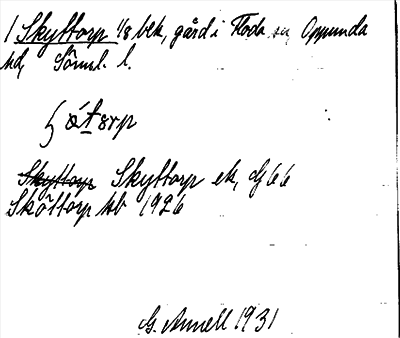 1 Skyttorp 1/8 blek, gård i Floda sn, Oppunda
hd, Söml. l.
Skyttorp Skyttorp ek, dj 66
Sköttorp kb 1926
G. Annell 1931